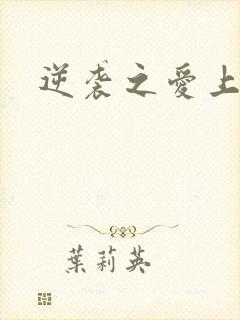 逆袭之愛上
葉莉英